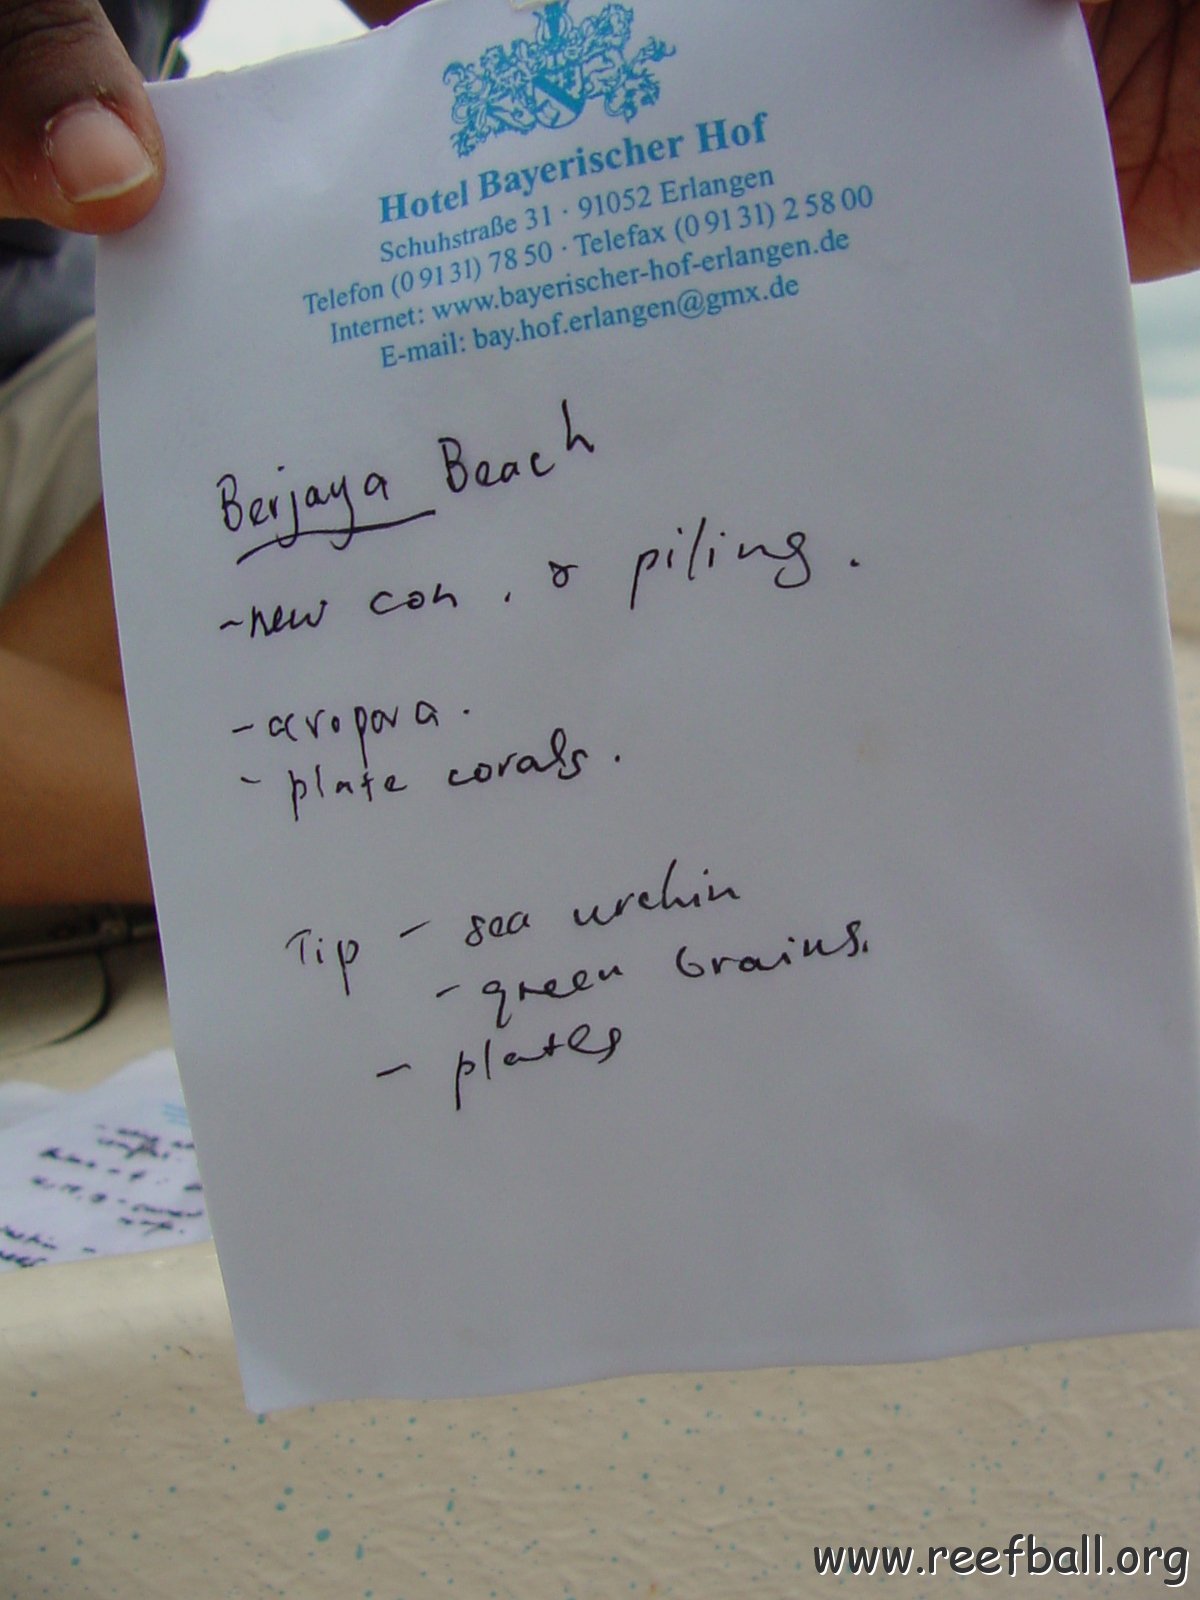 Hotel Bayerischer Hof
Schuhstraße 31 · 91052 Erlangen
Telefon (0 91 31) 78 50 · Telefax (0 91 31) 2 58 00
Internet: www.bayerischer-hof-erlangen.de
E-mail: bay.hof.erlangen@gmx.de
Berjaya Beach
-new con. & piling.
-acropora.
- plate corals.
Tip - sea urchin
- green brains.
- plates
www.reefball.org